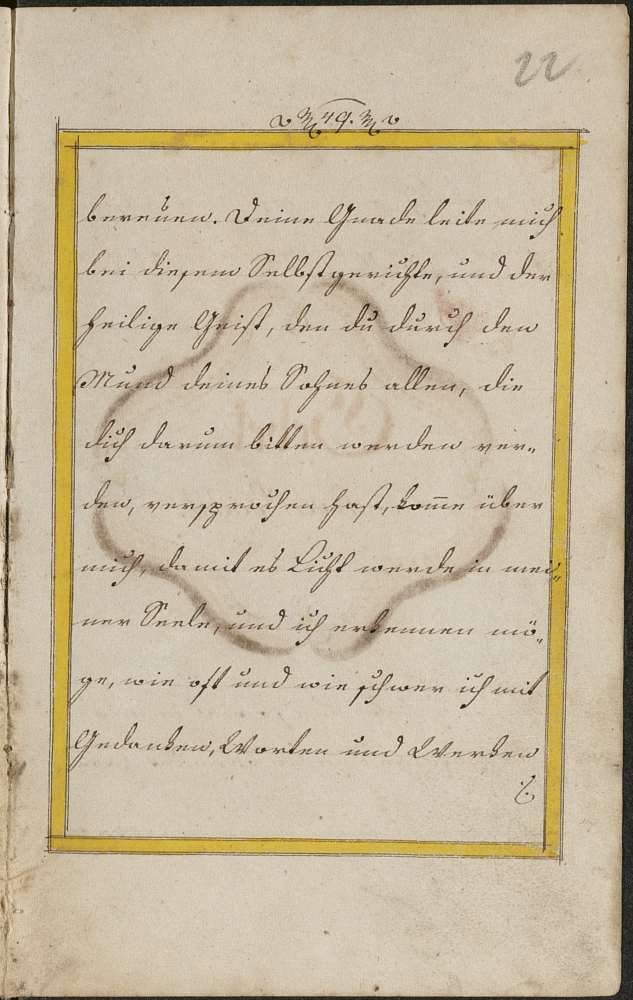 22
49.
bereuen. Deine Gnade leite mich
bei diesem Selbstgerichte, und der
heilige Geist, den du durch den
Mund deines Sohnes allen, die
dich darum bitten werden wer-
den, versprochen hast, kom̅e über
mich, damit es Licht werde in mei-
ner Seele, und ich erkennen mö-
ge, wie oft und wie schwer ich mit
Gedanken, Worten und Werken